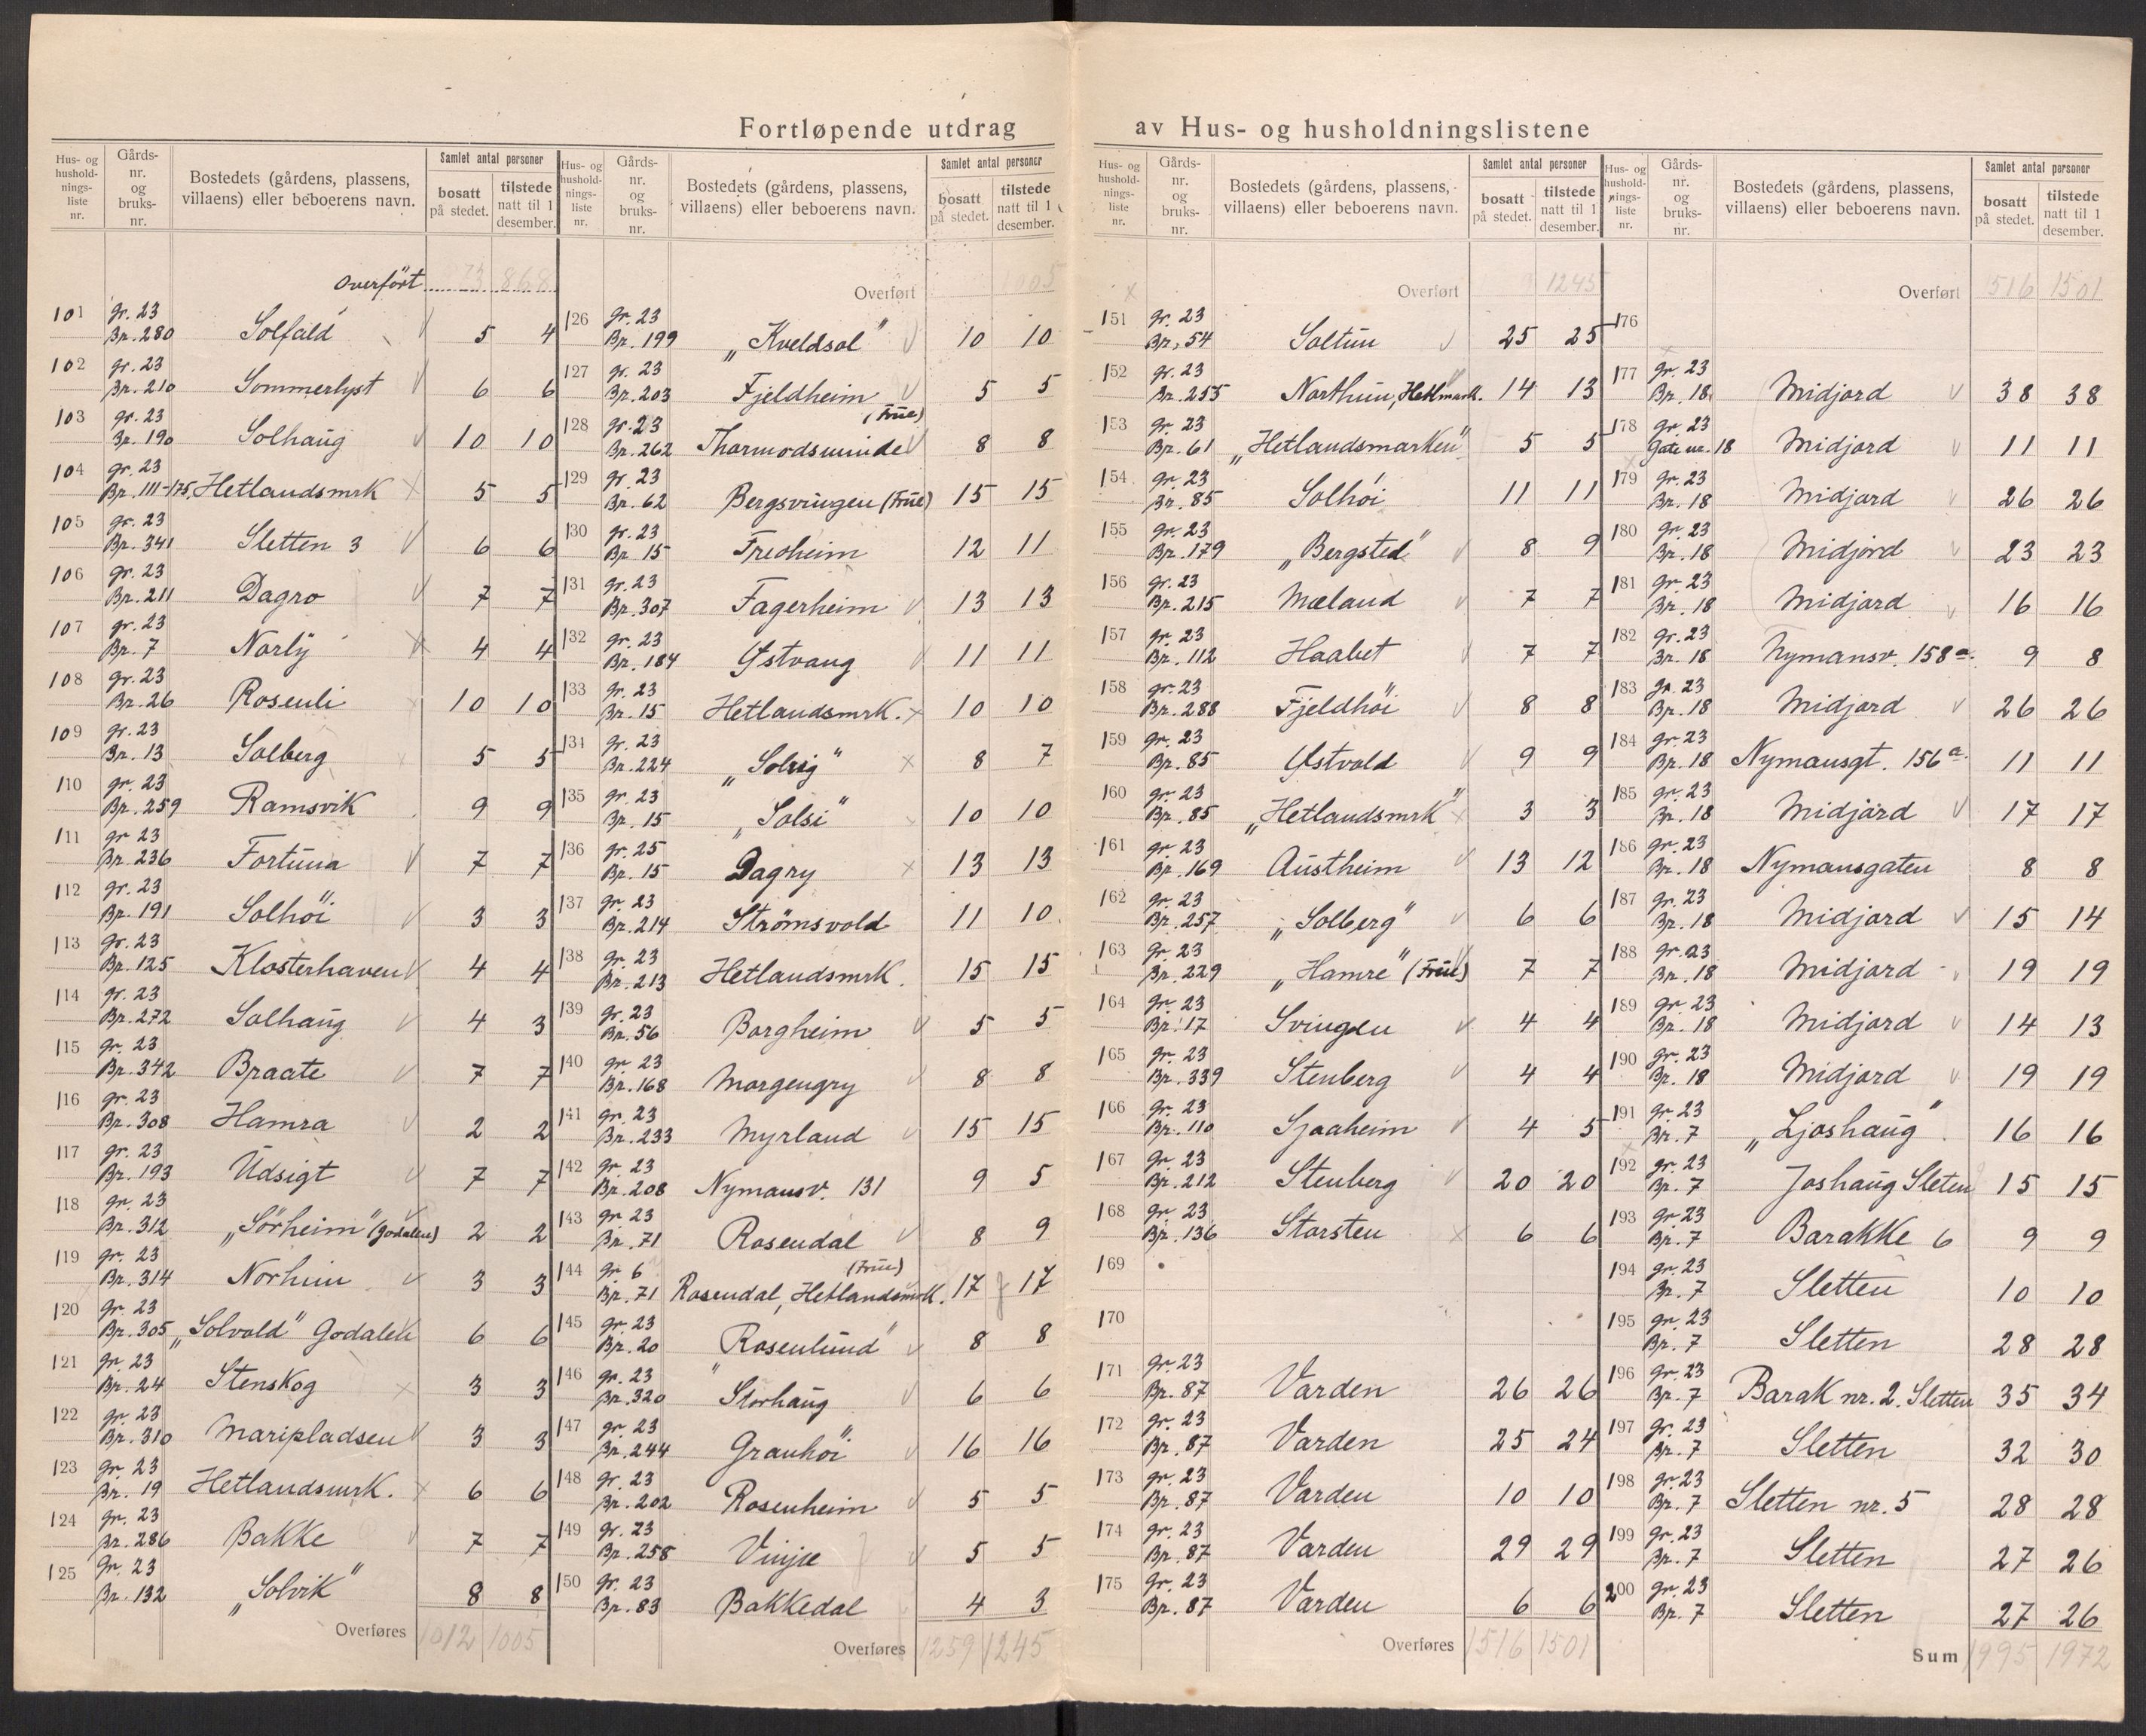 Fortløpende utdrag av Hus- og husholdningslistene
Hus- og husholdningsliste nr. | Gårds- nr. og bruks- nr. | Bostedets (gårdens, plassens, villaens) eller beboerens navn. | Samlet antal personer | bosatt på stedet. | tilstede natt til 1 desember.
Overført 868
101 gr. 23 Br. 280 Solfald 5 4
102 gr. 23 Br. 210 Sommerlyst 6 6
103 gr. 23 Br. 190 Solhaug 10 10
104 gr. 23 Br. 111-175 Hetlandsmrk 5 5
105 gr. 23 Br. 341 Sletten 3 6 6
106 gr. 23 Br. 211 Dagro 7 7
107 gr. 23 Br. 7 Norly 4 4
108 gr. 23 Br. 26 Rosenli 10 10
109 gr. 23 Br. 13 Solberg 5 5
110 gr. 23 Br. 259 Ramsvik 9 9
111 gr 23 Br. 236 Fortuna 7 7
112 gr. 23 Br. 191 Solhöi 3 3
113 gr. 23 Br. 125 Klosterhaven 4 4
114 gr. 23 Br. 272 Solhaug 4 3
115 gr. 23 Br. 342 Braate 7 7
116 gr. 23 Br. 308 Hamra 2 2
117 gr. 23 Br. 193 Udsigt 7 7
118 gr. 23 Br. 312 „Sörheim" (Godalen) 2 2
119 gr. 23 Br. 314 Norhim 3 3
120 gr. 23 Br. 305 „Solvold" Godalen 6 6
121 gr. 23 Br. 24 Stenskog 3 3
122 gr. 23 Br. 310 Maripladsen 3 3
123 gr. 23 Br. 19 Hetlandsmrk. 6 6
124 gr. 23 Br. 286 Bakke 7 7
125 gr. 23 Br. 132 „Solvik" 8 8
Overføres 1012 1005
Hus- og husholdningsliste nr. | Gårds- nr. og bruks- nr. | Bostedets (gårdens, plassens, villaens) eller beboerens navn. | Samlet antal personer | bosatt på stedet. | tilstede natt til 1 desember.
Overført 1005
126 gr. 23 Br. 199 „Kveldsol" 10 10
127 gr. 23 Br. 203 Fjeldheim 5 5
128 gr. 23 Br. 262 Thormodsminde (Frue) 8 8
129 gr. 23 Br. 62 Bergsvingen (Frue) 15 15
130 gr. 23 Br. 15 Fredheim 12 11
131 gr. 23 Br. 307 Fagerheim 13 13
132 gr. 23 Br. 184 Østvang 11 11
133 gr. 23 Br. 15 Hetlandsmrk. 10 10
134 gr. 23 Br. 224 „Solvig" 8 7
135 gr. 23 Br. 15 „Solsi" 10 10
136 gr. 25 Br. 15 Dagry 13 13
137 gr. 23 Br. 214 Strömsvold 11 10
138 gr. 23 Br. 213 Hetlandsmrk. 15 15
139 gr. 23 Br. 56 Borgheim 5 5
140 gr. 23 Br. 168 Morgengry 8 8
141 gr. 23 Br. 233 Myrland 15 15
142 gr. 23 Br. 208 Nymansv. 131 9 5
143 gr 23 Br. 71 Rosendal 8 9
144 gr 6 Br. 71 Rosendal, Hetlandsmrk. (Frue) 17 17
145 gr. 23 Br. 20 „Rosenlund" 8 8
146 gr. 23 Br. 320 Storhaug 6 6
147 gr. 23 Br. 244 Granhöi 16 16
148 gr. 23 Br. 202 Rosenheim 5 5
149 gr. 23 Br. 258 Vinje 5 5
150 gr. 23 Br. 83 Bakkedal 4 3
Overføres 1259 1245
Hus- og husholdningsliste nr. | Gårds- nr. og bruks- nr. | Bostedets (gårdens, plassens, villaens) eller beboerens navn. | Samlet antal personer | bosatt på stedet. | tilstede natt til 1 desember.
Overført 1245
151 gr. 23 Br. 54 Soltun 25 25
152 gr. 23 Br. 255 Northun, Hetlmark. 14 13
153 gr. 23 Br. 61 „Hetlandsmarken" 5 5
154 gr. 23 Br. 85 Solhöi 11 11
155 gr. 23 Br. 179 „Bergsted" 8 9
156 gr. 23 Br. 215 Mæland 7 7
157 gr. 23 Br. 112 Haabet 7 7
158 gr. 23 Br. 288 Fjeldhöi 8 8
159 gr. 23 Br. 85 Østvold 9 9
160 gr. 23 Br. 85 „Hetlandsmrk" 3 3
161 gr 23 Br. 169 Austheim 13 12
162 gr. 23 Br. 257 „Solberg" 6 6
163 gr. 23 Br. 229 „Hamre" (Frue) 7 7
164 gr. 23 Br. 17 Svingen 4 4
165 gr. 23 Br. 339 Stenberg 4 4
166 gr. 23 Br. 110 Sjaaheim 4 5
167 gr. 23 Br. 212 Stenberg 20 20
168 gr. 23 Br. 136 Storsten 6 6
169
170
171 gr. 23 Br. 87 Varden 26 26
172 gr. 23 Br. 87 Varden 25 24
173 gr. 23 Br. 87 Varden 10 10
174 gr. 23 Br. 87 Varden 29 29
175 gr. 23 Br. 87 Varden 6 6
Overføres 1516 1501
Hus- og husholdningsliste nr. | Gårds- nr. og bruks- nr. | Bostedets (gårdens, plassens, villaens) eller beboerens navn. | Samlet antal personer | bosatt på stedet. | tilstede natt til 1 desember.
Overført 1516 1501
176
177 gr. 23 Br. 18 Midjord 38 38
178 gr 23 Gate nr. 18 Midjord 11 11
179 gr. 23 Br. 18 Midjord 26 26
180 gr. 23 Br. 18 Midjord 23 23
181 gr. 23 Br. 18 Midjord 16 16
182 gr. 23 Br. 18 Nymansv. 158a. 9 8
183 gr. 23 Br. 18 Midjord 26 26
184 gr. 23 Br. 18 Nymansgt. 156a. 11 11
185 gr. 23 Br. 18 Midjord 17 17
186 gr. 23 Br. 18 Nymansgaten 8 8
187 gr. 23 Br. 18 Midjord 15 14
188 gr. 23 Br. 18 Midjord 19 19
189 gr. 23 Br. 18 Midjord 14 13
190 gr. 23 Br. 18 Midjord 19 19
191 gr. 23 Br. 7 „Ljoshaug" 16 16
192 gr. 23 Br. 7 Joshaug Sleten 15 15
193 gr. 23 Br. 7 Barakke 6 9 9
194 gr. 23 Br. 7 Sletten 10 10
195 gr. 23 Br. 7 Sletten 28 28
196 gr. 23 Br. 7 Barak nr. 2. Sletten 35 34
197 gr. 23 Br. 7 Sletten 32 30
198 gr. 23 Br. 7 Sletten nr. 5 28 28
199 gr. 23 Br. 7 Sletten 27 26
200 gr. 23 Br. 7 Sletten 27 26
Sum 1995 1972